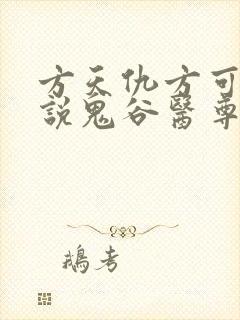 方天仇方可
說鬼谷醫尊
鵝考